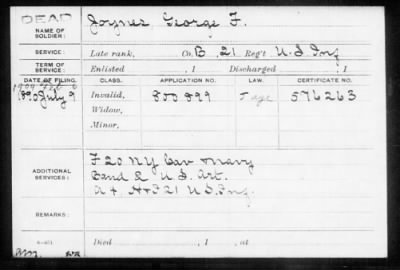 DEAD
NAME OF SOLDIER: Joynes George F.
SERVICE: Late rank, Co. B, 21 Reg't U.S. Inf
TERM OF SERVICE: Enlisted , 1 Discharged , 1
DATE OF FILING. CLASS. APPLICATION NO. LAW. CERTIFICATE NO.
1880 July 9 Invalid, 800899 576263
Widow,
Minor,
F 20 NY Cav Navy
ADDITIONAL SERVICES: Band 2 U.S. Art.
A &. H & F 21 U.S. Inf.
REMARKS:
Died , 1 , at